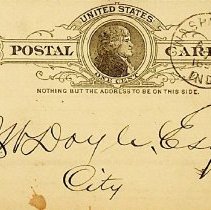 UNITED STATES
POSTAL CARD
ONE CENT
NOTHING BUT THE ADDRESS TO BE ON THIS SIDE.
IND
W Doyle, Esq
City